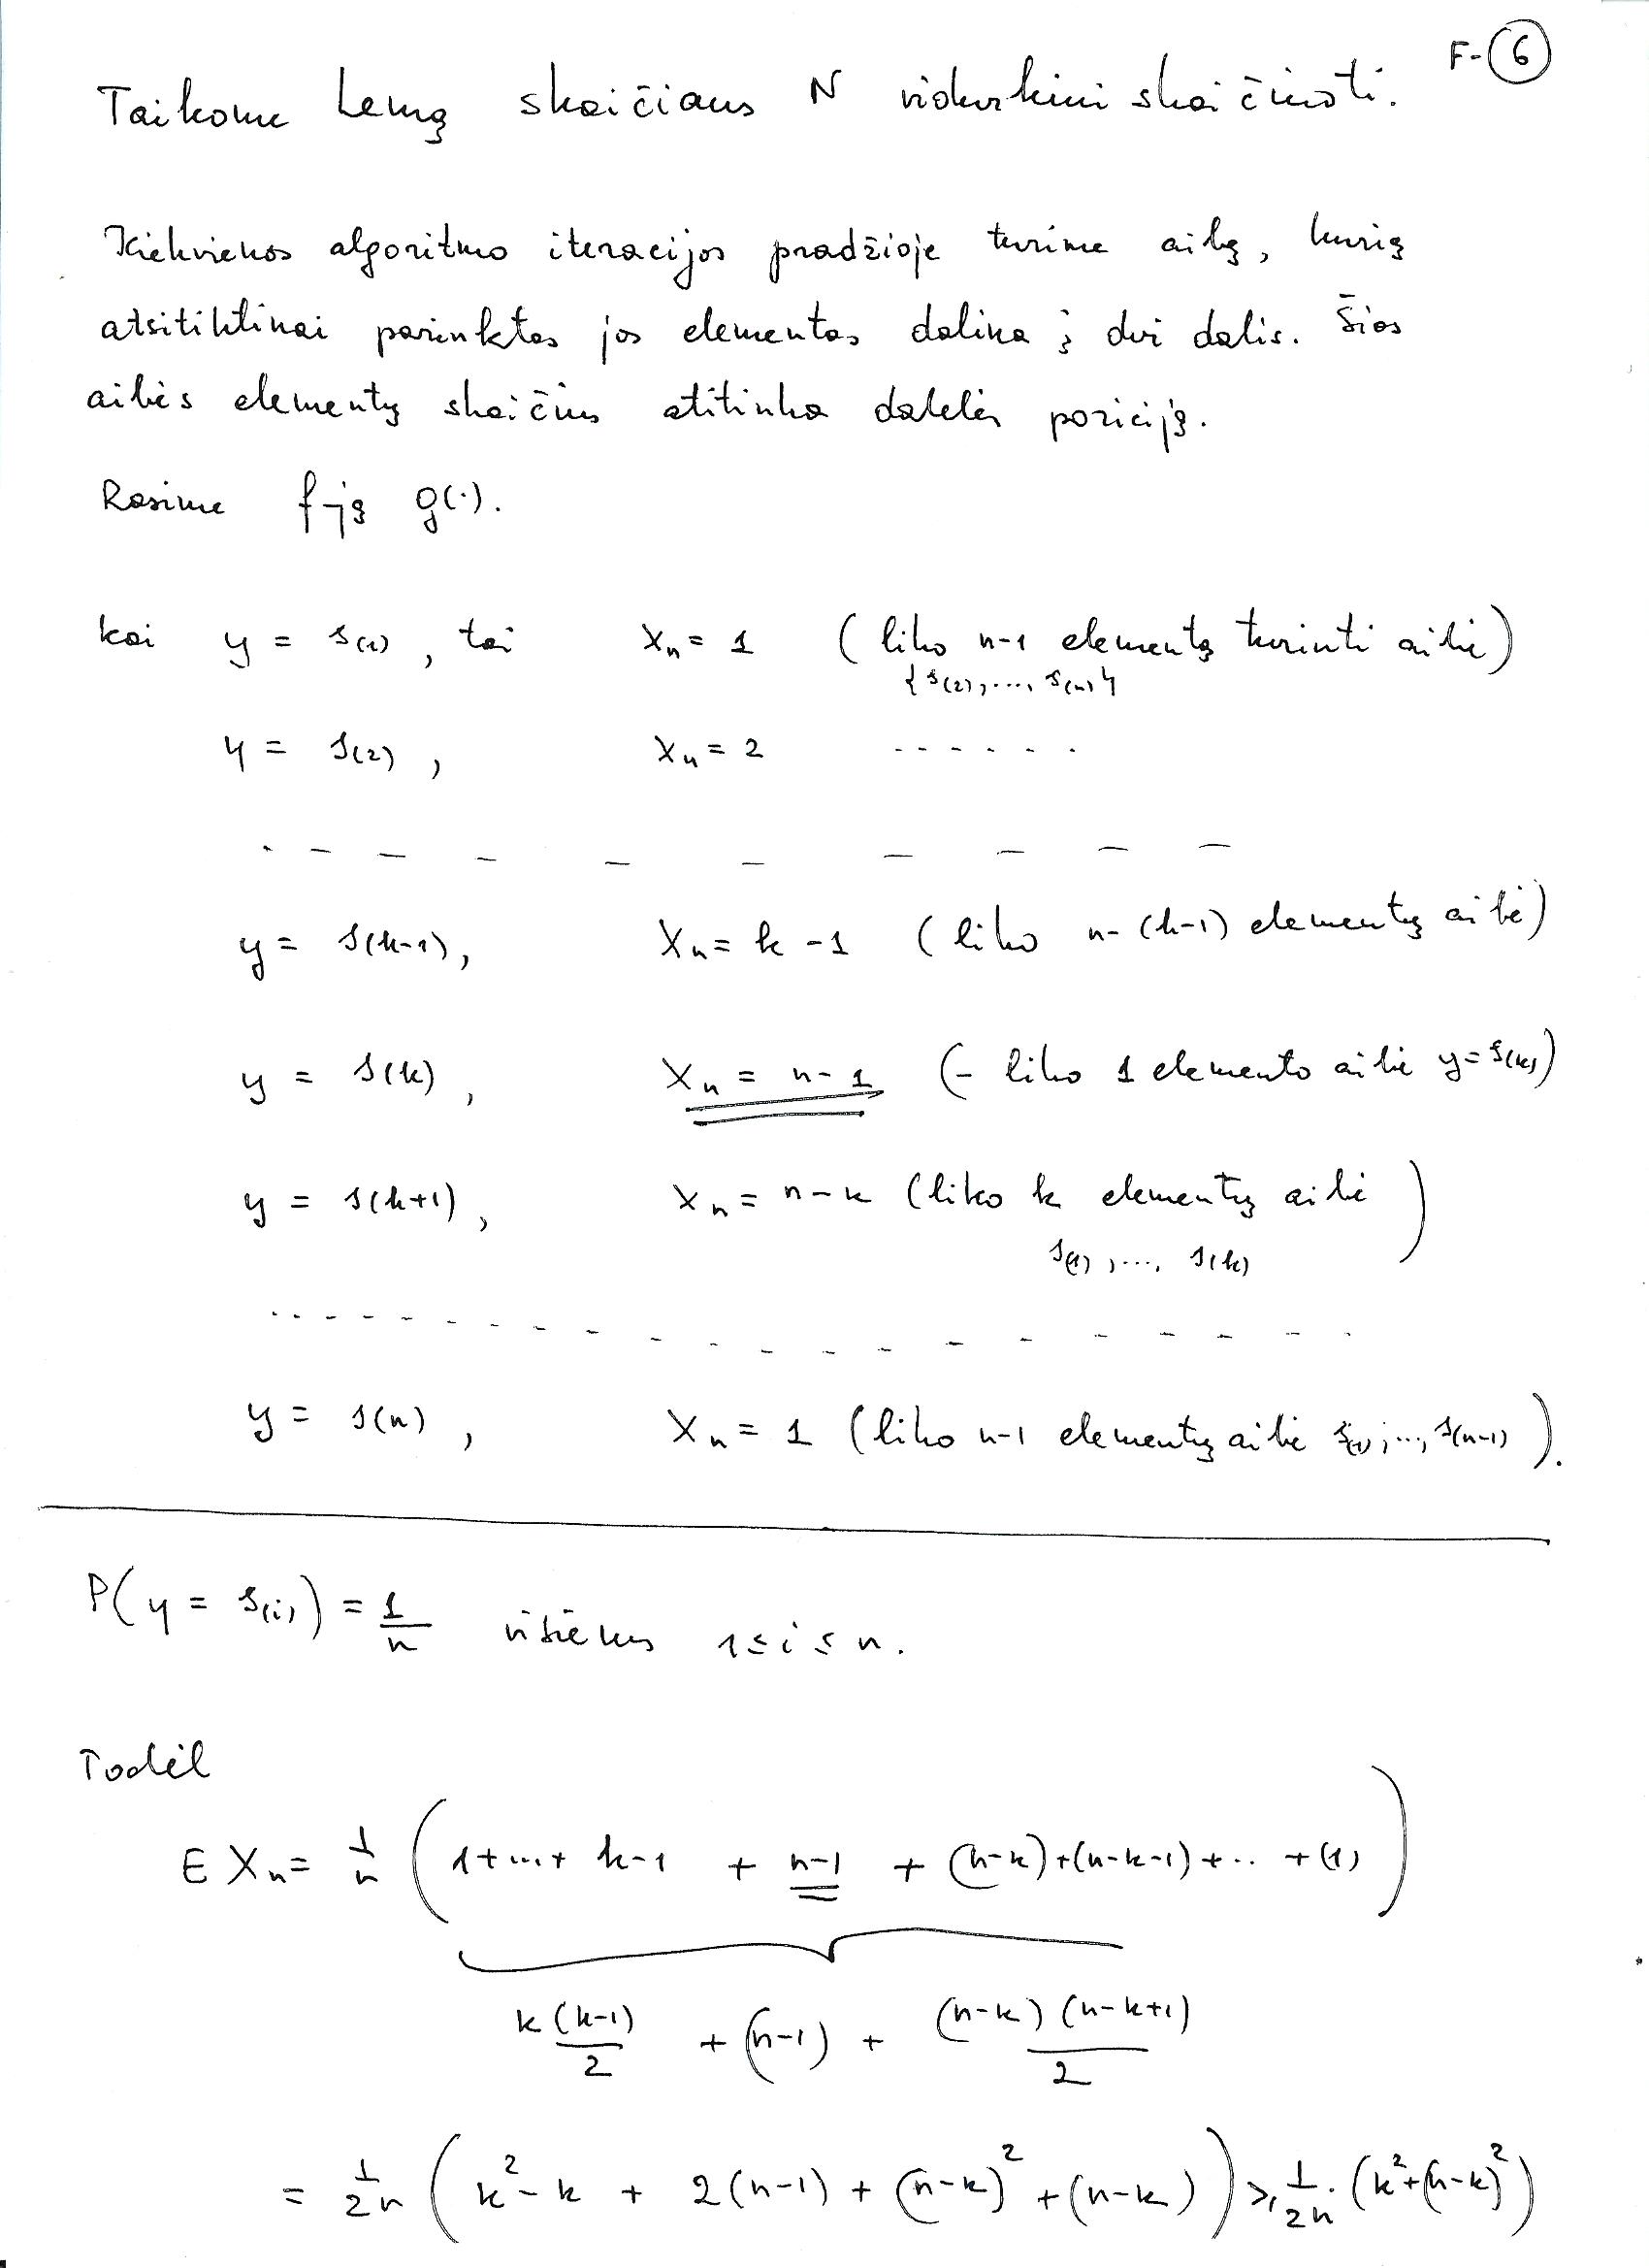 F-(6)
Taikome Lemą skaičiaus N vidurkiui skaičiuoti.
Kiekvienos algoritmo iteracijos pradžioje turime aibę, kurią
atsitiktinai parinktas jos elementas dalina į dvi dalis. Šios
aibės elementų skaičius atitinka dalelės poziciją.
Rasime f-ją g(·).
kai y = s(1), tai Xn = 1 (liko n-1 elementą turinti aibė)
{s(2), ..., s(n)}
y = s(2), Xn = 2 ......
- - - - - - - - - -
y = s(k-1), Xn = k-1 (liko n-(k-1) elementų aibė)
y = s(k), Xn = n-1 (- liko 1 elemento aibė y = s(k))
y = s(k+1), Xn = n-k (liko k elementų aibė
s(1), ..., s(k))
- - - - - - - - - -
y = s(n), Xn = 1 (liko n-1 elementų aibė s(1), ..., s(n-1)).
P(y = s(i)) = 1/n visiems 1 ≤ i ≤ n.
Todėl
E Xn = 1/n (1+...+ k-1 + n-1 + (n-k)+(n-k-1)+.. +(1))
k(k-1)/2 + (n-1) + (n-k)(n-k+1)/2
= 1/2n (k²-k + 2(n-1) + (n-k)² + (n-k)) ≥ 1/2n · (k²+(n-k)²)